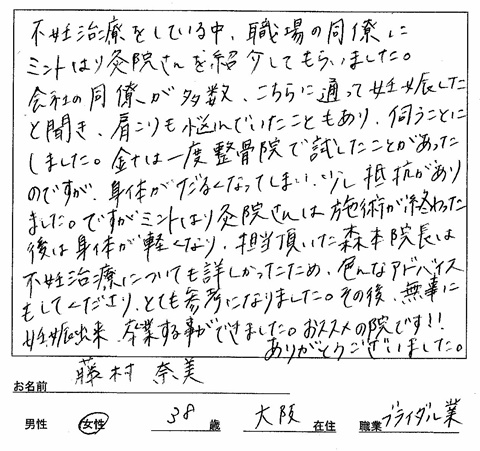 不妊治療をしている中、職場の同僚に
ミントはり灸院さんを紹介してもらいました。
会社の同僚が多数、こちらに通って妊娠した
と聞き、肩こりも悩んでいたこともあり、伺うことに
しました。金十は一度整骨院で試したことがあった
のですが、身体がだるくなってしまい、少し抵抗があり
ました。ですがミントはり灸院さんは施術が終わった
後は身体が軽くなり、担当頂いた森本院長は
不妊治療についても詳しかったため、色んなアドバイス
もしてくださり、とても参考になりました。その後、無事に
妊娠出来、卒業する事ができました。おススメの院です!!
ありがとうございました。
お名前 藤村 奈美
男性 女性 38 歳 大阪 在住 職業 ブライダル業